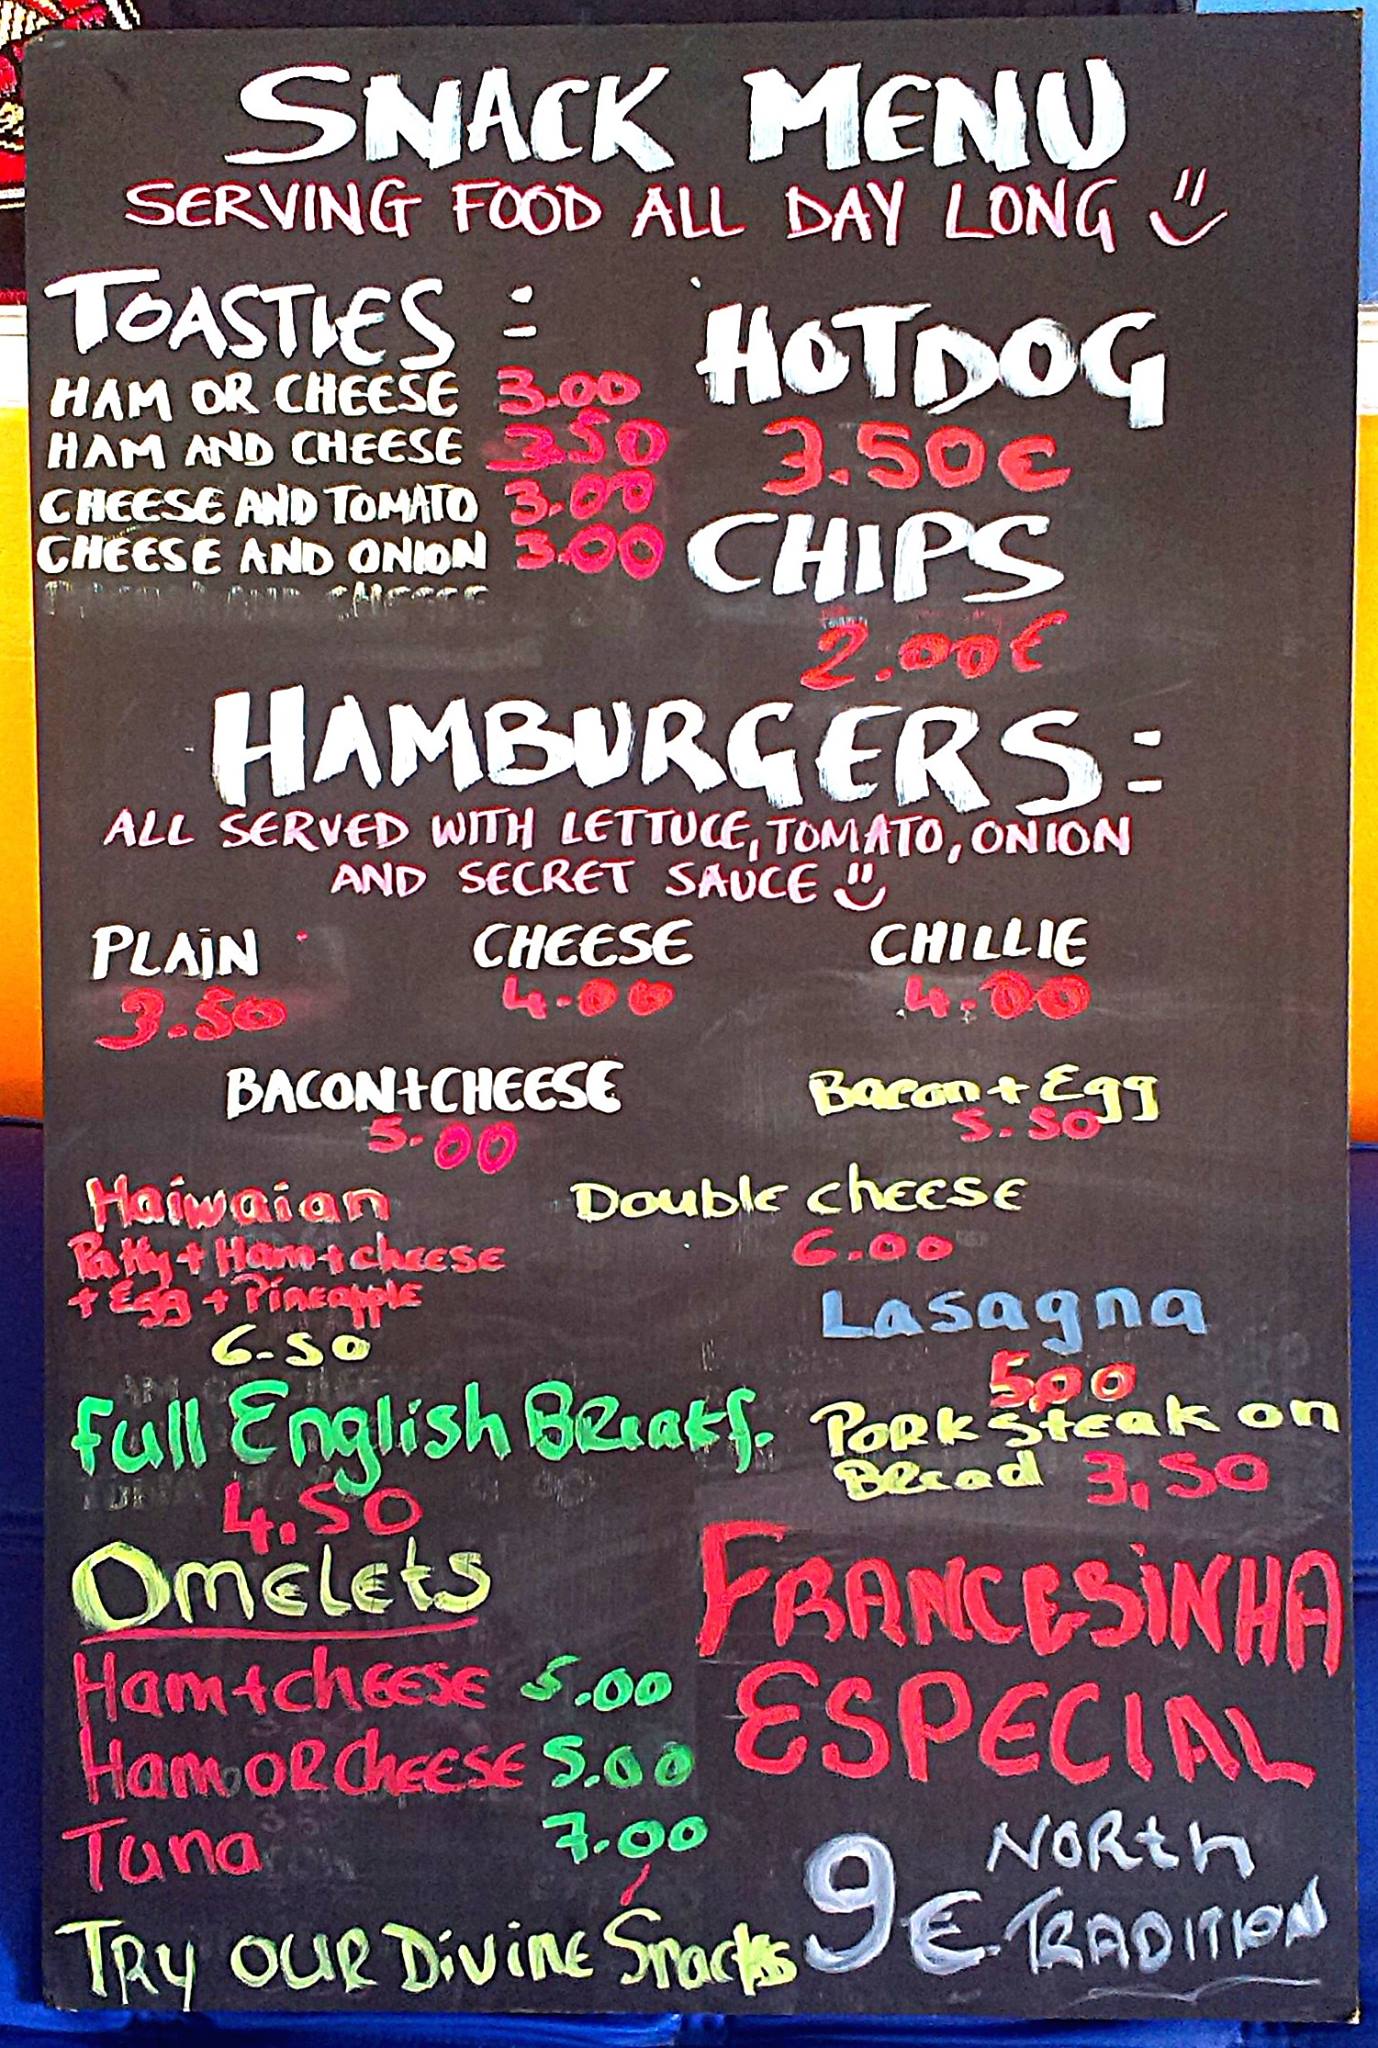 SNACK MENU
SERVING FOOD ALL DAY LONG
TOASTIES :
HAM OR CHEESE 3.00
HAM AND CHEESE 3.50
CHEESE AND TOMATO 3.00
CHEESE AND ONION 3.00
HOTDOG
3.50€
CHIPS
2.00€
HAMBURGERS:
ALL SERVED WITH LETTUCE, TOMATO, ONION
AND SECRET SAUCE
PLAIN
3.50
CHEESE
4.00
CHILLIE
4.00
BACON+CHEESE
5.00
Bacon + Egg
5.50
Haiwaian
Patty + Ham + cheese
+ Egg + Pineapple
6.50
Double cheese
6.00
Lasagna
5,00
Full English Breakf.
4.50
Pork steak on
Bread 3,50
Omelets
Ham+cheese 5.00
Ham OR Cheese 5.00
Tuna 7.00
FRANCESINHA
ESPECIAL
9€ NORTH
TRADITION
TRY OUR DiViNE Snacks